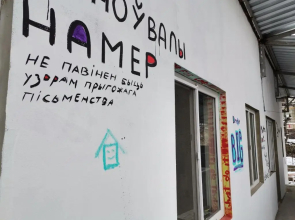 НОЎВАЛЫ
НАМЕР
НЕ ПАВІНЕН БЫЦЬ
УЗОРАМ ПРЫГОЖАГА
ПІСЬМЕНСТВА